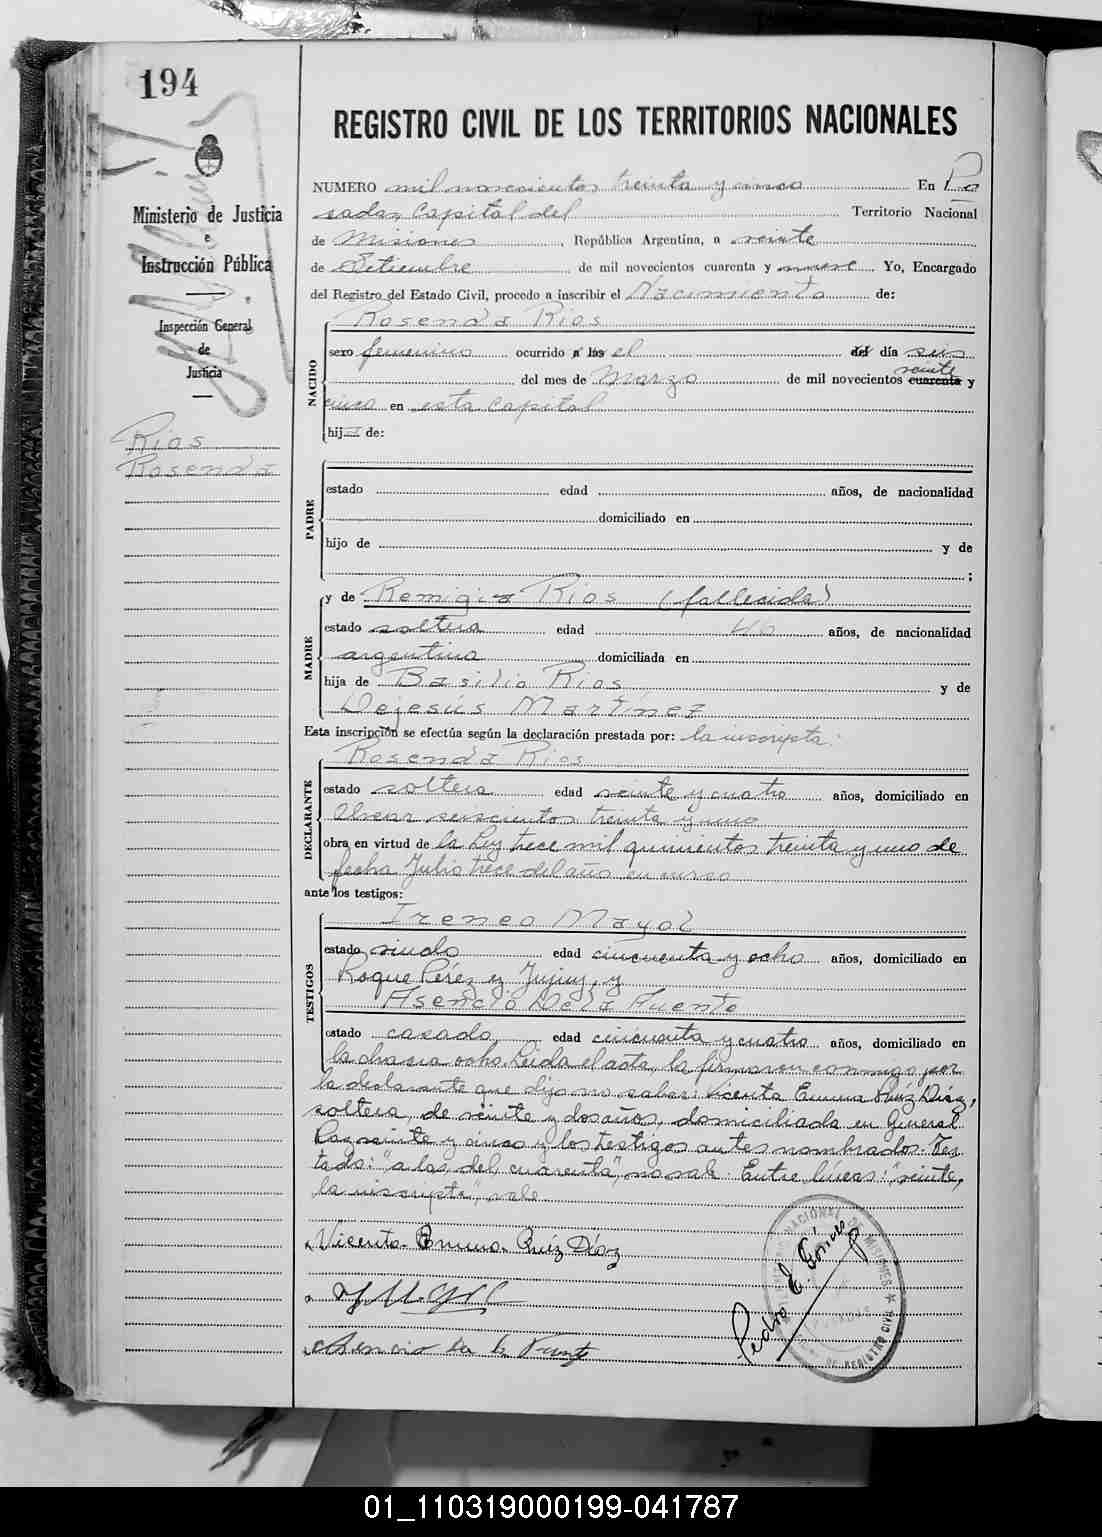 194
Ministerio de Justicia
e
Instrucción Pública
Inspección General
de
Justicia
Rios
Rosenda
REGISTRO CIVIL DE LOS TERRITORIOS NACIONALES
NUMERO mil novecientos treinta y cinco En Po
sadas, Capital del Territorio Nacional
de Misiones, República Argentina, a veinte
de Setiembre de mil novecientos cuarenta y nueve Yo, Encargado
del Registro del Estado Civil, procedo a inscribir el Nacimiento de:
NACIDO
Rosenda Rios
sexo femenino ocurrido a las el del día seis
veinte
del mes de Marzo de mil novecientos cuarenta y
cinco en esta capital
hija de:
PADRE
estado edad años, de nacionalidad
domiciliado en
hijo de y de
;
MADRE
y de Remigia Rios (fallecida)
estado soltera edad 46 años, de nacionalidad
argentina domiciliada en
hija de Basilio Rios y de
Dejesús Martínez
Esta inscripción se efectúa según la declaración prestada por: la inscripta:
DECLARANTE
Rosenda Rios
estado soltera edad veinte y cuatro años, domiciliado en
Alvear seiscientos treinta y uno
obra en virtud de la Ley trece mil quinientos treinta y uno de
fecha Julio trece del año en curso
ante los testigos:
TESTIGOS
Ireneo Mayol
estado viudo edad cincuenta y ocho años, domiciliado en
Roque Pérez y Jujuy, y
Asencio De la Fuente
estado casado edad cincuenta y cuatro años, domiciliado en
la chacra ocho. Leida el acta, la firmaron conmigo, por
la declarante que dijo no saber: Vicenta Emma Ruíz Díaz,
soltera, de veinte y dos años, domiciliada en General
Paz veinte y cinco y los testigos antes nombrados. Tes
tado: "a las, del, cuarenta", no vale. Entre líneas: "veinte,
la inscripta", vale
Vicenta Emma Ruíz Díaz
Asencio De la Fuente
Pedro E.
REGISTRO CIVIL
01_110319000199-041787